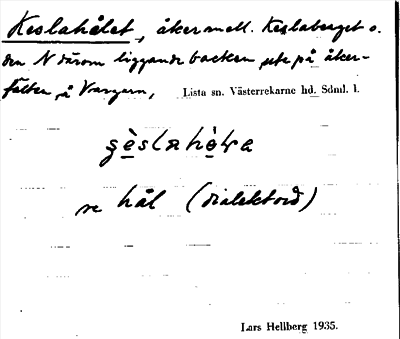 Keslahålet, åker mell. Keslaberget o.
den N därom liggande backen ute på åker-
fälten å Vrangarn, Lista sn. Västerrekarne hd. Sdml. l.
se hål (dialektord)
Lars Hellberg 1935.